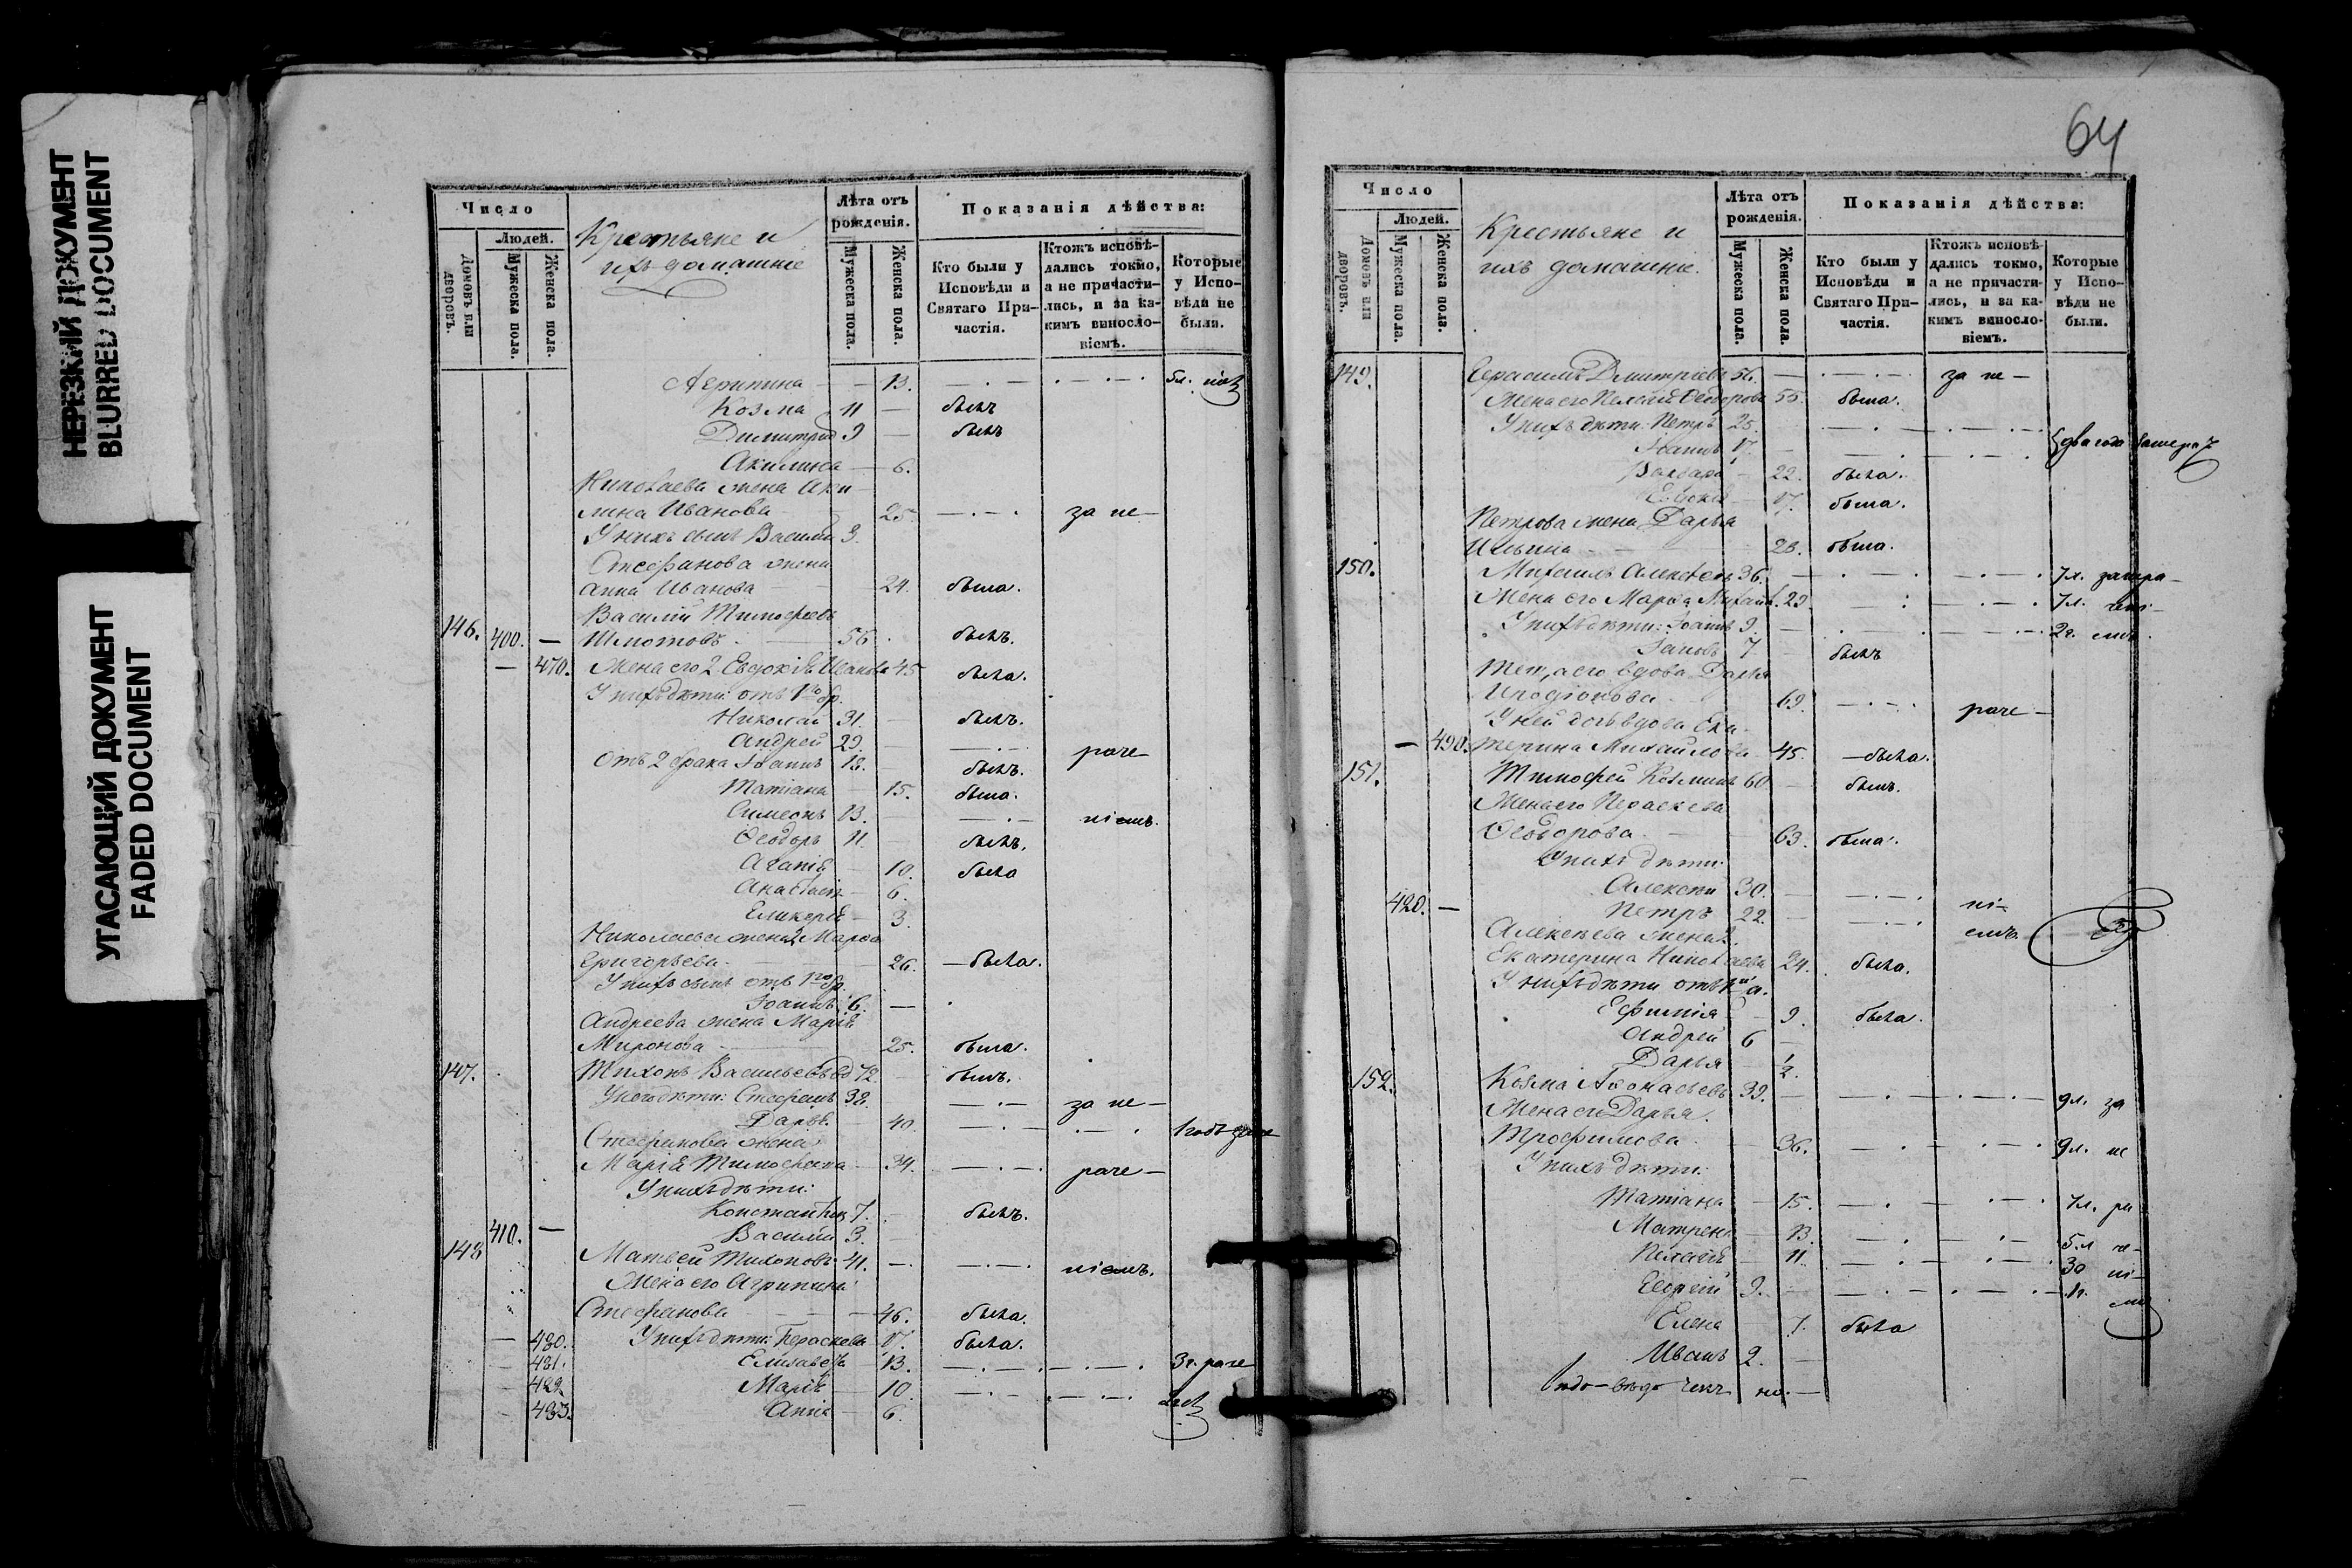 НЕРЕЗКИЙ ДОКУМЕНТ
BLURRED DOCUMENT
УГАСАЮЩИЙ ДОКУМЕНТ
FADED DOCUMENT
Число
Людей.
Домовъ или дворовъ.
Мужеска пола.
Женска пола.
Крестьяне и
ихъ домашніе
Лѣта отъ рожденія.
Мужеска пола.
Женска пола.
Показанія дѣйства:
Кто были у Исповѣди и Святаго Причастія.
Ктожъ исповѣдались токмо, а не причастились, и за какимъ винословіемъ.
Которые у Исповѣди не были.
Агрипина — — 13.
Козма 11 — былъ
Димитрій 9 — былъ
Акилина — 6.
Николаева жена Аки-
лина Иванова 25. за не—
У нихъ сынъ Василій 3.
Стефанова жена
Анна Иванова 24. была.
Василій Тимофеевъ
146. 400. — Шмотовъ 56. былъ.
— 470. Жена его 2. Евдокія Иванова 45 была.
У нихъ дѣти отъ 1го бр.
Николай 31. былъ.
Андрей 29. — раче—
Отъ 2 брака Іоаннъ 18. былъ.
Татіана 15. была.
Симеонъ 13. ніемъ.
Ѳеодоръ 11. былъ.
Агапія 10. была
Анастасія 6.
Гликерія 3.
Николаева жена 2 Марѳа
Григорьева 26. — была.
У нихъ сынъ отъ 1го бр.
Іоаннъ 6. —
Андреева жена Марія
Миронова 25. была.
147. Тихонъ Васильевъ вд 72 былъ.
У него дѣти: Стефанъ 38. за не—
Дарія 40 1 годъ
Стефанова жена
Марія Тимофеева 34. раче—
У нихъ дѣти:
Константинъ 7. былъ.
410. — Василій 3.
148 Матвей Тихоновъ 41. ніемъ.
Жена его Агрипина
Стефанова 46. была.
— 480. У нихъ дѣти: Пераскева 17. была.
— 481. Елизавета 13. 3г. раче
— 482. Марія 10.
— 483. Анна 6.
64
Число
Людей.
Домовъ или дворовъ.
Мужеска пола.
Женска пола.
Крестьяне и
ихъ домашніе.
Лѣта отъ рожденія.
Мужеска пола.
Женска пола.
Показанія дѣйства:
Кто были у Исповѣди и Святаго Причастія.
Ктожъ исповѣдались токмо, а не причастились, и за какимъ винословіемъ.
Которые у Исповѣди не были.
149. Герасимъ Дмитріевъ 56. за не—
Жена его Пелагія Ѳеодорова 55. была.
У нихъ дѣти: Петръ 25.
Іоаннъ 17. два года
Варвара 22. была.
Евдокія 17. была.
Петрова жена Дарья
Ильина 28. была.
150. Михаилъ Алексѣевъ 36. 7л. занера—
Жена его Марѳа 29. 7л.
У нихъ дѣти: Іоаннъ 9. 2г. емъ.
Іаковъ 7. былъ
Теща его вдова Дарья
Иродіонова 69. раче—
У ней дочь вдова Ека-
— 490. терина Михайлова 45. — была.
151. Тимофей Козминъ 60 былъ.
Жена его Пераскева
Ѳеодорова 63. была.
У нихъ дѣти:
Алексѣй 30. ні-
420. — Петръ 22. емъ.
Алексѣева жена 2.
Екатерина Николаева 24. была.
У нихъ дѣти отъ
Ефимія 9. была.
Андрей 6 —
Дарья 1/2.
152. Козма Аѳонасьевъ 39. 9л. за
Жена его Дарья
Трофимова 36. 9л. не
У нихъ дѣти:
Татіана 15. 7л. ра
Матрена 13. 5л че-
Пелагія 11. 3г ні-
Георгій 9. 1г. емъ
Елена 7. была
Иванъ 2. —